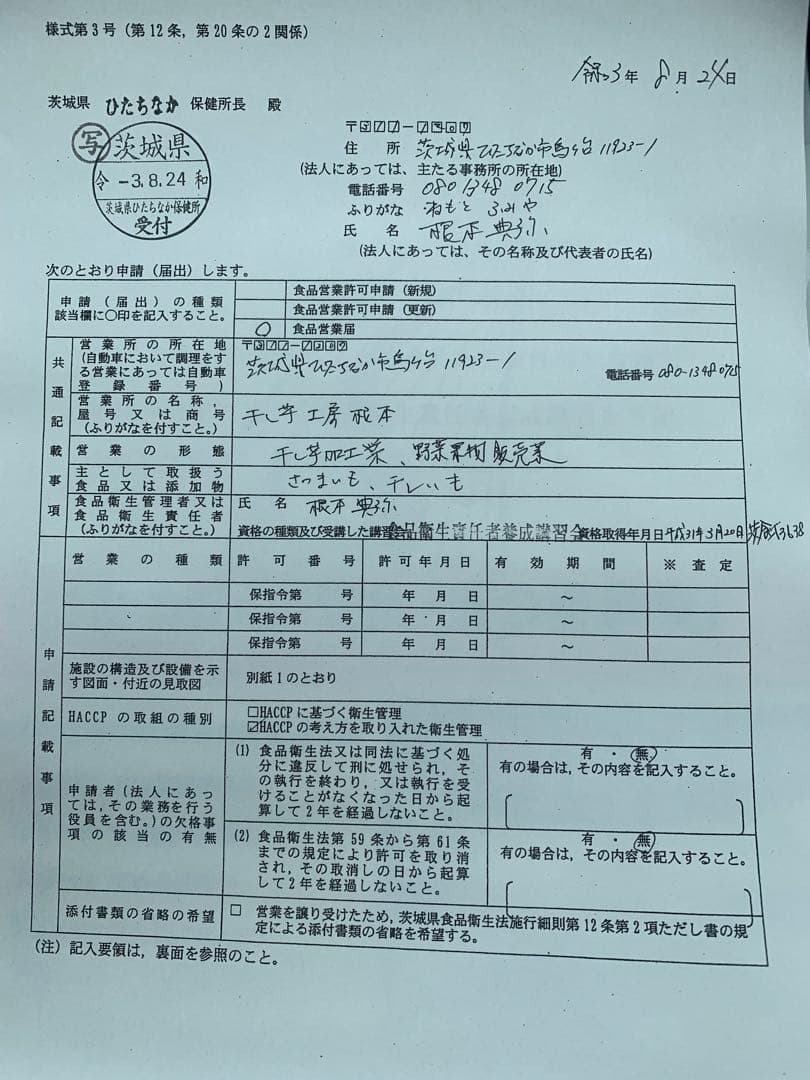 様式第3号(第12条,第20条の2関係)
令和3年 8月 24日
茨城県 ひたちなか 保健所長 殿
写
茨城県
令 -3.8.24 和
茨城県ひたちなか保健所
受付
住所 茨城県ひたちなか市馬渡11923-1
(法人にあっては、主たる事務所の所在地)
電話番号 080 1348 0715
ふりがな ねもと ふみや
氏名 根本 典弥
(法人にあっては、その名称及び代表者の氏名)
次のとおり申請(届出)します。
申請(届出)の種類
該当欄に○印を記入すること。
食品営業許可申請(新規)
食品営業許可申請(更新)
○ 食品営業届
共通記載事項
営業所の所在地
(自動車において調理をす
る営業にあっては自動車
登録番号)
茨城県ひたちなか市馬渡 11923-1
電話番号 080-1348 0715
営業所の名称,
屋号又は商号
(ふりがなを付すこと。)
干し芋 工房 根本
営業の形態
干し芋加工業、野菜果物販売業
主として取扱う
食品又は添加物
さつまいも、干しいも
食品衛生管理者又は
食品衛生責任者
(ふりがなを付すこと。)
氏名 根本 典弥
資格の種類及び受講した講習会 食品衛生責任者養成講習会 資格取得年月日 平成31年3月20日
申請記載事項
営業の種類 許可番号 許可年月日 有効期間 ※査定
保指令第 号 年 月 日 ~
保指令第 号 年 月 日 ~
保指令第 号 年 月 日 ~
施設の構造及び設備を示
す図面・付近の見取図
別紙1のとおり
HACCPの取組の種別
□HACCPに基づく衛生管理
☑HACCPの考え方を取り入れた衛生管理
申請者(法人にあっ
ては,その業務を行う
役員を含む。)の欠格事
項の該当の有無
(1) 食品衛生法又は同法に基づく処
分に違反して刑に処せられ,そ
の執行を終わり,又は執行を受
けることがなくなった日から起
算して2年を経過しないこと。
有・無
有の場合は,その内容を記入すること。
(2) 食品衛生法第59条から第61条
までの規定により許可を取り消
され,その取消しの日から起算
して2年を経過しないこと。
有・無
有の場合は,その内容を記入すること。
添付書類の省略の希望
□ 営業を譲り受けたため,茨城県食品衛生法施行細則第12条第2項ただし書の規
定による添付書類の省略を希望する。
(注) 記入要領は,裏面を参照のこと。